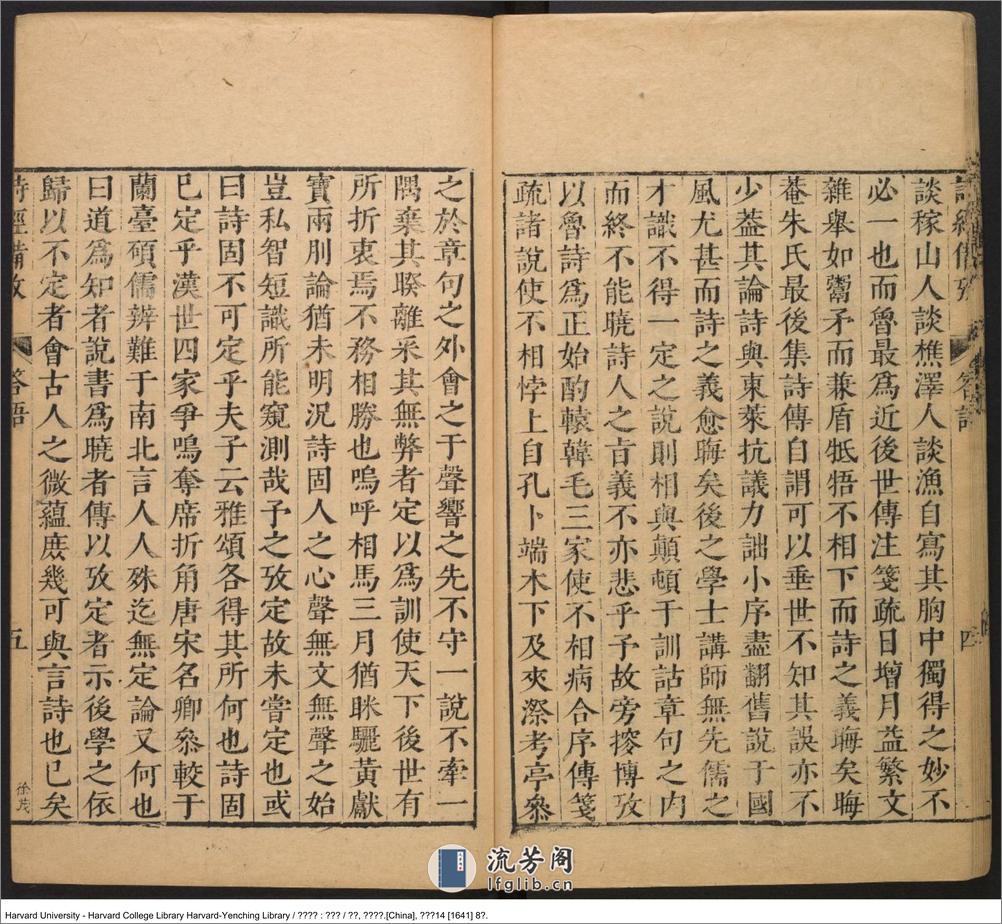 詩經備攷 答語 四
談稼山人談樵澤人談漁自寫其胸中獨得之妙不
必一也而魯最爲近後世傳注箋疏日增月益繁文
雜舉如鬻矛而兼盾牴牾不相下而詩之義晦矣晦
菴朱氏最後集詩傳自謂可以垂世不知其誤亦不
少葢其論詩與東萊抗議力詘小序盡翻舊說于國
風尤甚而詩之義愈晦矣後之學士講師無先儒之
才識不得一定之說則相與顛頓于訓詁章句之內
而終不能曉詩人之旨義不亦悲乎予故旁搜博攷
以魯詩爲正始酌轅韓毛三家使不相病合序傳箋
疏諸說使不相悖上自孔卜端木下及夾漈考亭叅
之於章句之外會之于聲響之先不守一說不牽一
隅棄其睽離采其無弊者定以爲訓使天下後世有
所折衷焉不務相勝也嗚呼相馬三月猶眯驪黃獻
寶兩刖論猶未明況詩固人之心聲無文無聲之始
豈私智短識所能窺測哉予之攷定故未嘗定也或
曰詩固不可定乎夫子云雅頌各得其所何也詩固
已定乎漢世四家爭鳴奪席折角唐宋名卿叅較于
蘭臺碩儒辨難于南北言人人殊迄無定論又何也
曰道爲知者說書爲曉者傳以攷定者示後學之依
歸以不定者會古人之微蘊庶幾可與言詩也已矣
詩經備攷 答語 五
徐茂
流芳阁
lfglib.cn
Harvard University - Harvard College Library Harvard-Yenching Library / ???? : ??? / ??, ????.[China], ???14 [1641] 8?.